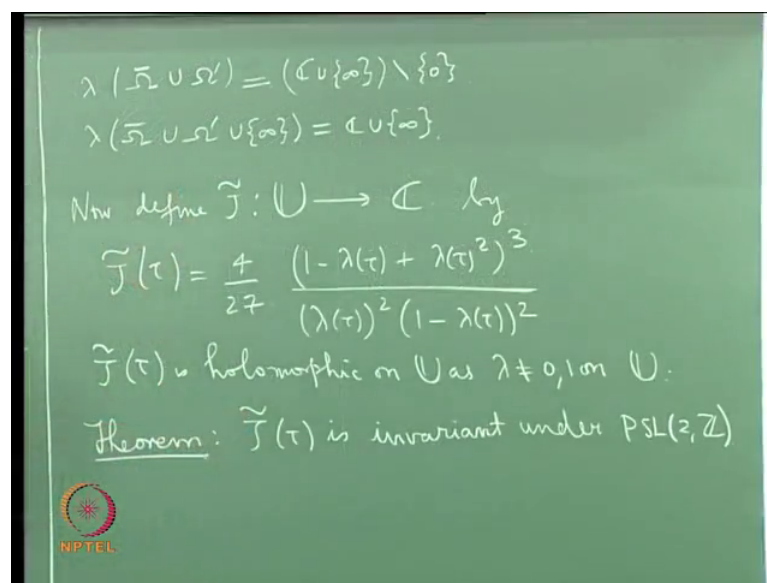 λ(Ω̄ ∪ Ω′) = (ℂ∪{∞}) \ {0}
λ(Ω̄ ∪ Ω′ ∪{∞}) = ℂ∪{∞}.
Now define J̃ : U ⟶ ℂ by
J̃(τ) = 4/27 (1 - λ(τ) + λ(τ)²)³ / (λ(τ))² (1 - λ(τ))²
J̃(τ) is holomorphic on U as λ ≠ 0,1 on U.
Theorem: J̃(τ) is invariant under PSL(2, ℤ)
NPTEL